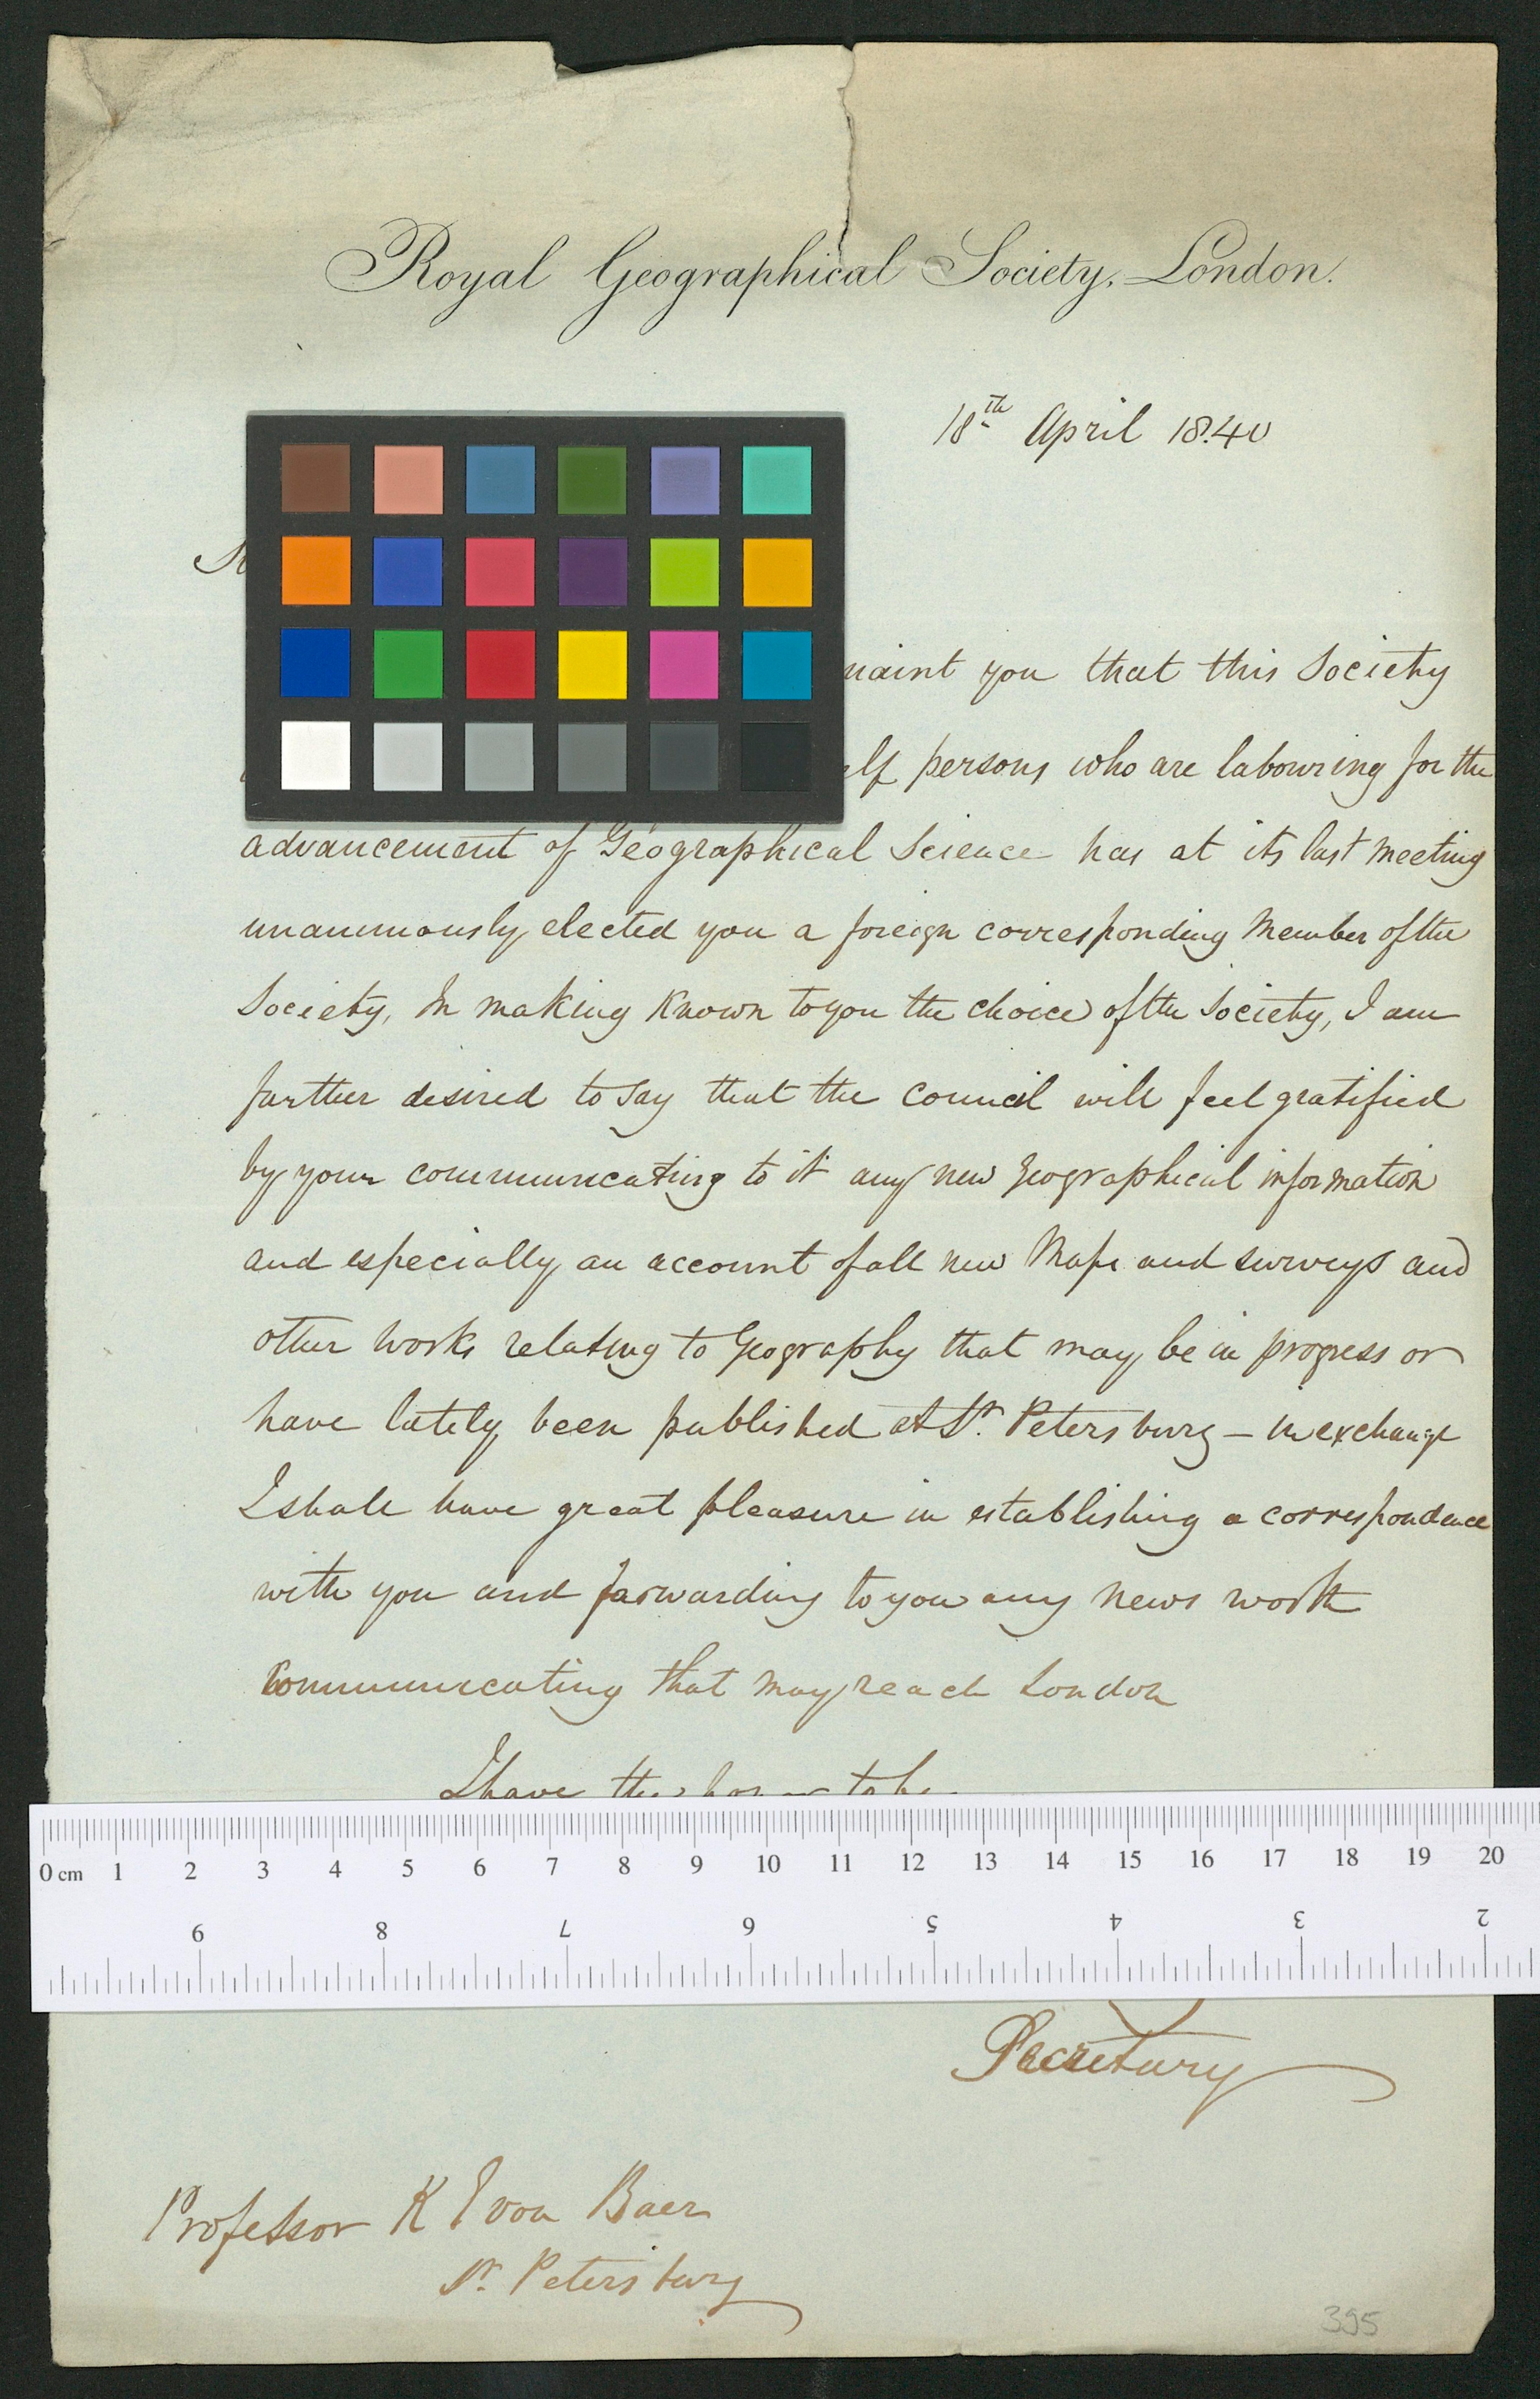 Royal Geographical Society, London.
18th April 1840
you that this Society
persons who are labouring for the
advancement of Geographical Science has at its last meeting
unanimously elected you a foreign corresponding Member of the
Society, In making known to you the choice of the Society, I am
further desired to say that the Council will feel gratified
by your communicating to it any new Geographical information
and especially an account of all new Maps and surveys and
other works relating to Geography that may be in progress or
have lately been published at St. Petersburg – in exchange
I shall have great pleasure in establishing a correspondence
with you and forwarding to you any news worth
Communicating that may reach London
I have the honor to be
0 cm 1 2 3 4 5 6 7 8 9 10 11 12 13 14 15 16 17 18 19 20
9 8 7 6 5 4 3 2
Secretary
Professor K E von Baer
St. Petersburg
395